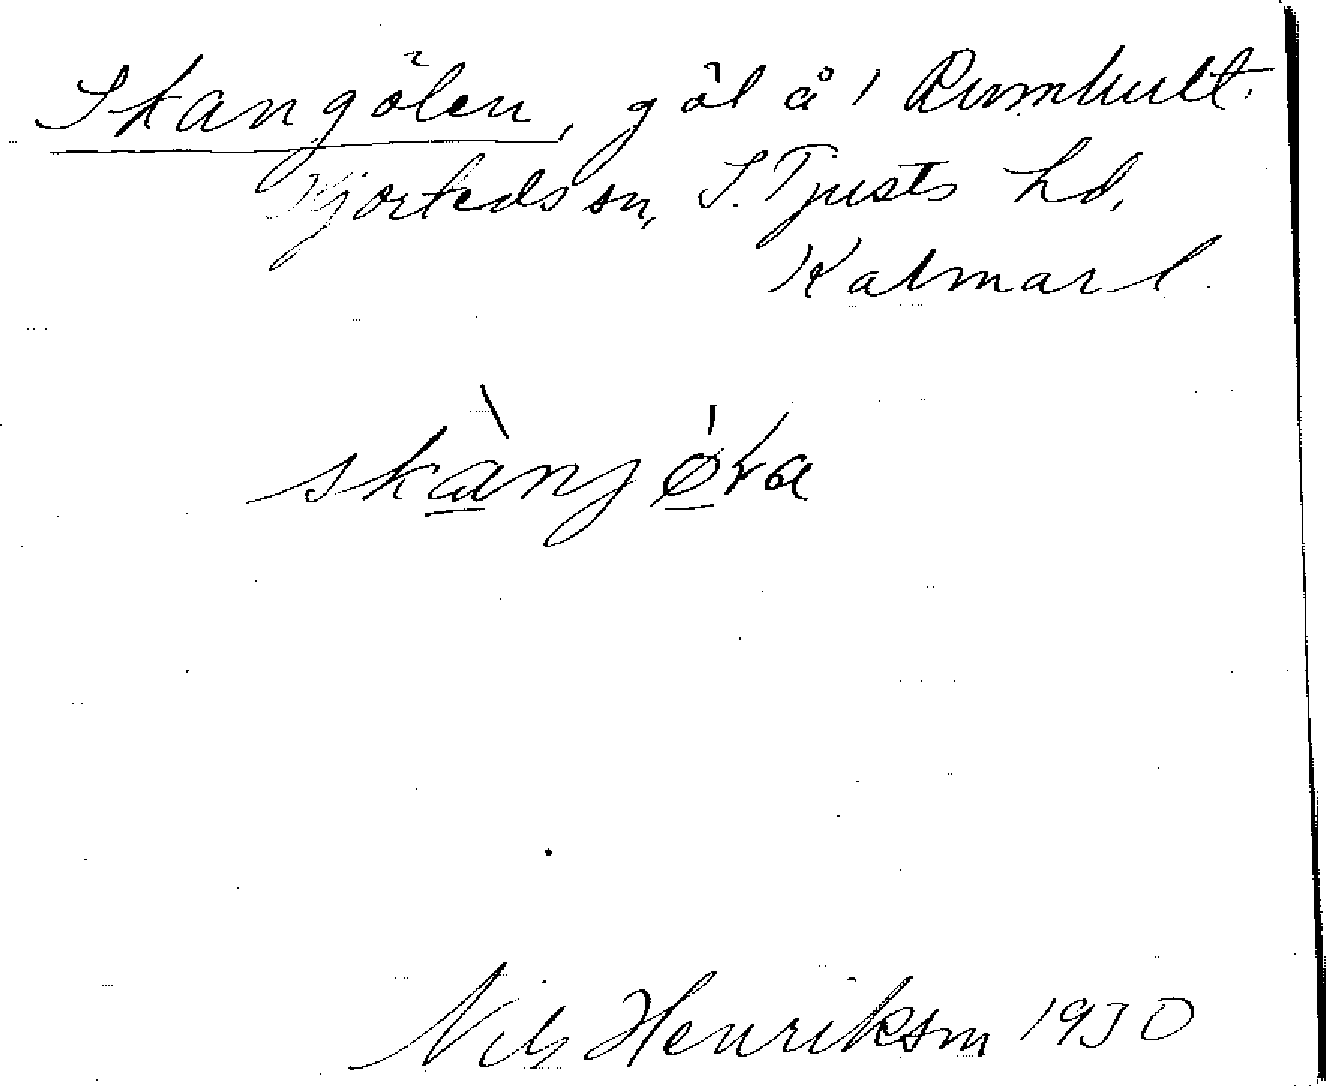 Skangölen, göl å 1 Rumhult.
Hjorteds sn, S. Tjusts hd,
Kalmar l.
skànjǿɽa
Nils Henrikson 1930